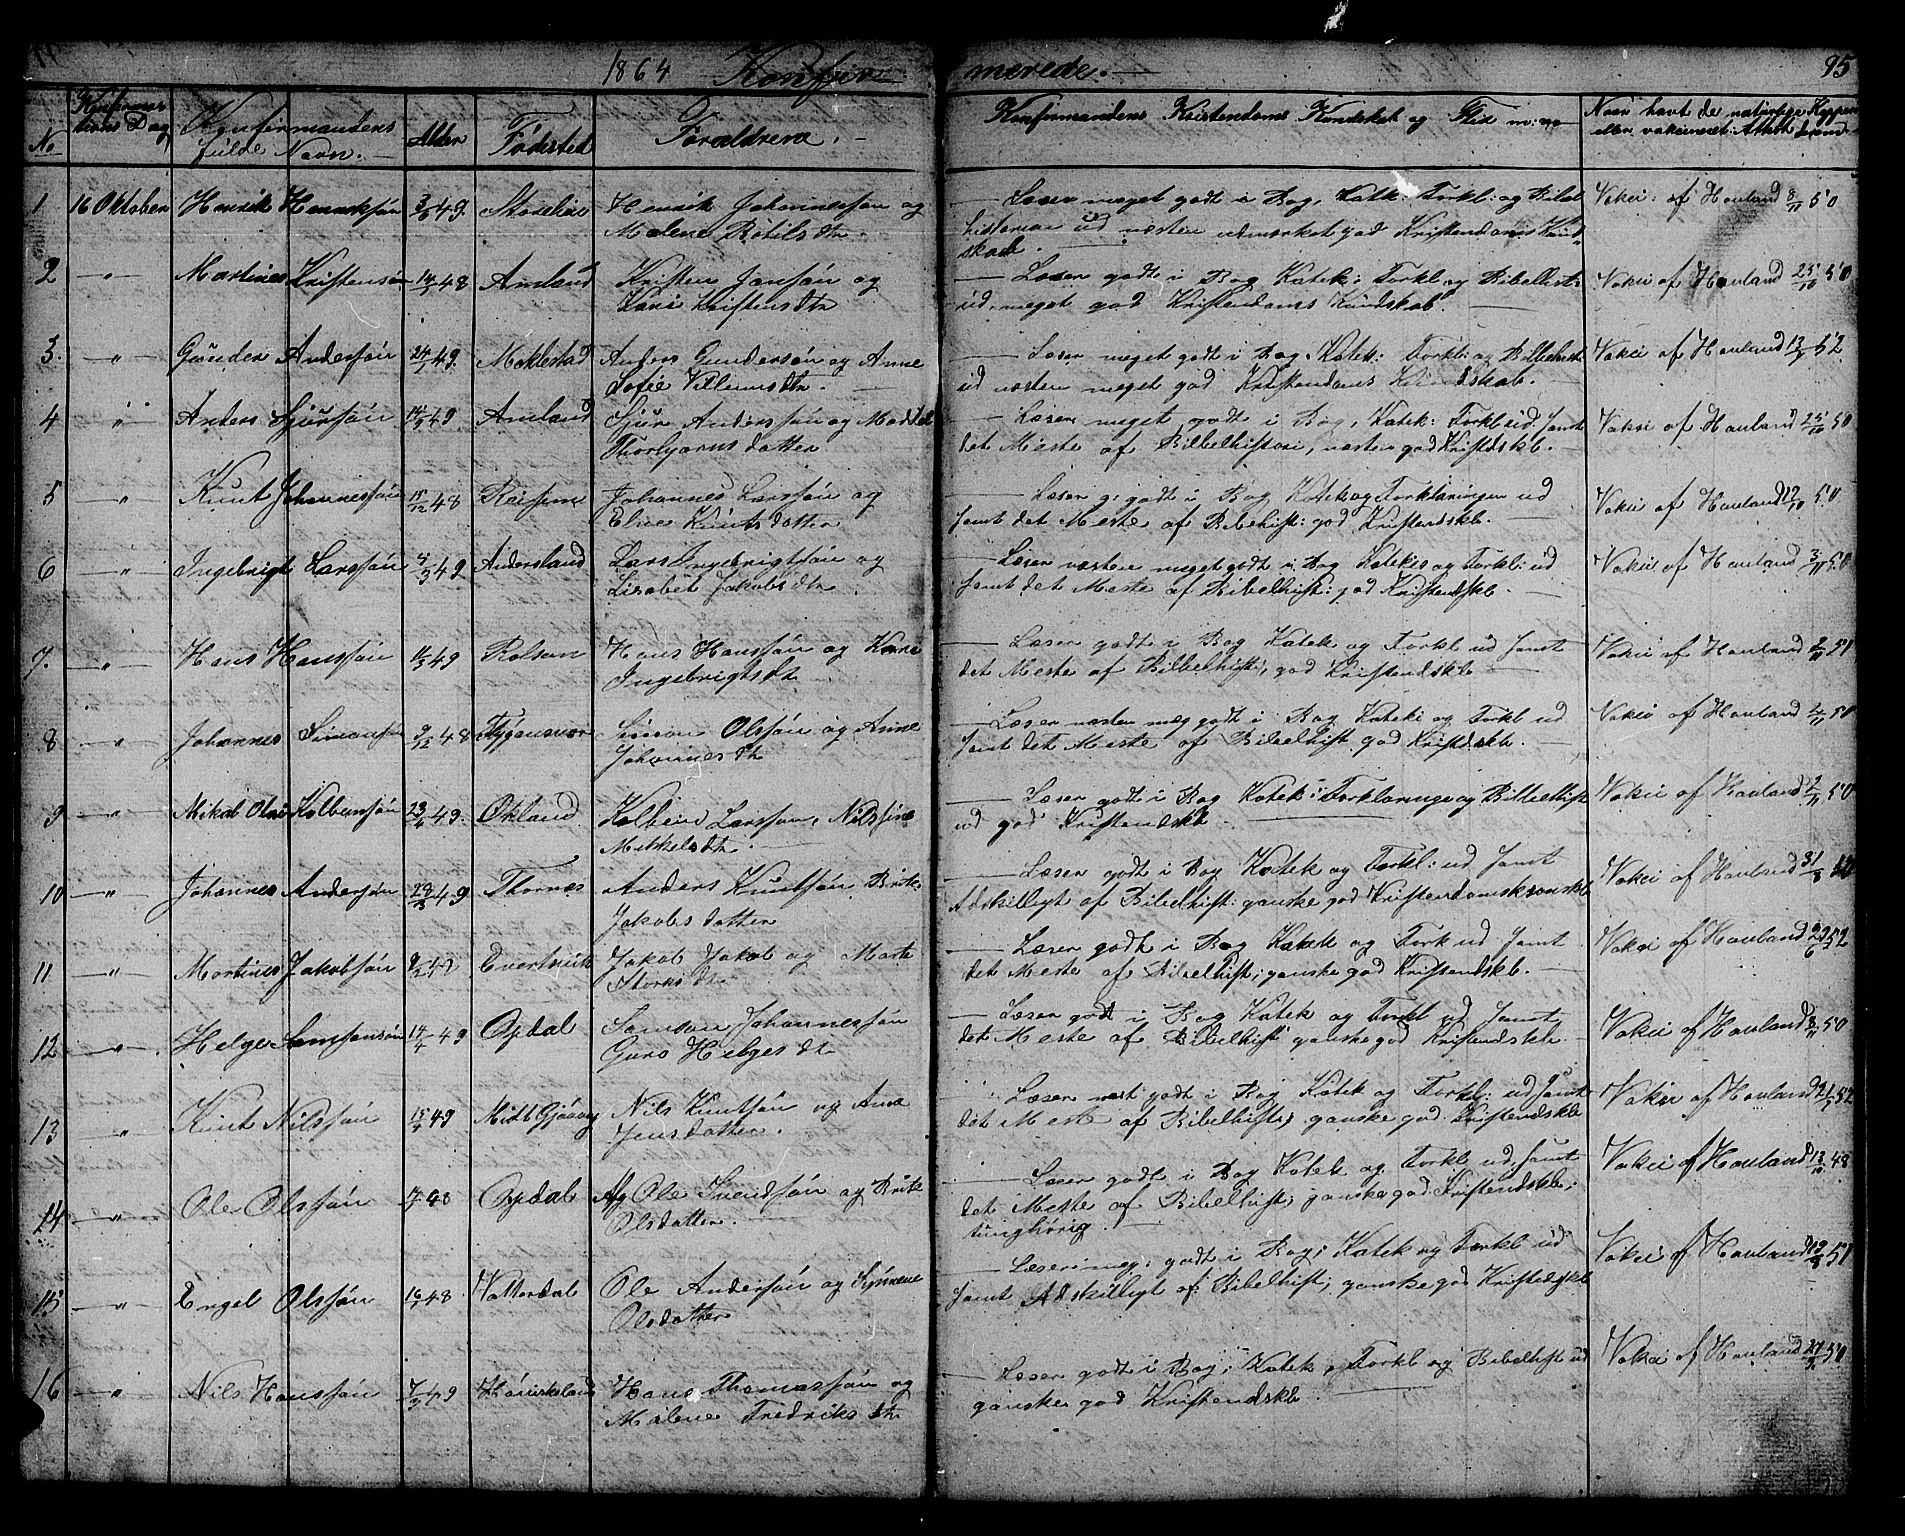 1864 Konfir merede. 95
No
Konfirmations Dag
Konfirmandens fulde Navn.
Alder
Fødested
Forældrene.
Konfirmandens Kristendoms Kundskab og Flid m:
Naar havt de naturlige Kopper eller vakineret: Attest derom
1 16 Oktober Henrik Henriksøn 49. Henrik Johannessøn og
Malene Botilsdtr
Læser meget godt i Bog, Katk: Forkl: og Bibel
historien ud næsten udmærket god Kristendoms Kund
skab.
Vakci: af Houland 8/11 50
2 " Martines Kristensøn 48 Amland Kristen Jansøn og
Kari Kristensdtr
Læser godt i Bog Katek: Forkl og Bibelhist:
ud, meget god Kristendoms Kundskab.
Vakci af Houland 25/10 50
3. " Gunder Andersøn 24/ 49. Moklestad Anders Gundersøn og Anne
Sofie Villumsdtr.
Læser meget godt i Bog, Katek: Forkl: og Bibelhist
ud næsten meget god Kristendoms Kundskab.
Vakci af Houland 13/ 52
4 " Anders Sjursøn 49 Amland Sjur Anderssøn og Maddel
Thorbjørnsdatter
Læser meget godt i Bog, Katek: Forkl ud samt
det Meste af Bibelhistori, næsten god Kristdskb.
Vakci af Houland 25/10 50
5 " Knut Johannessøn 15/12 48 Johannes Larssøn og
Eline Knutsdatter
Læser g: godt i Bog Katek og Forklaringen ud
samt det Meste af Bibelhist: god Kristendskb.
Vakci af Houland 50
6 " Ingebrigt Larssøn 49 Andersland Lars Ingebrigtsøn og
Lisabet Jakobsdtr
Læser næsten meget godt i Bog Katekis og Forkl: ud
samt det Meste af Bibelhist: god Kristendskb.
Vakci af Houland 3/11 50
7. " Hans Hanssøn 49 Rolson Hans Hanssøn og Kari
Ingebrigtsdtr
Læser godt i Bog Katek og Forkl ud samt
det Meste af Bibelhist; god Kristendskb
Vakci af Houland
8 " Johannes Simonsøn 9/12 48 Simon Olssøn og Anne
Johannesdtr
Læser næsten meg godt i Bog Kateki og Forkl ud
samt det Meste af Bibelhist god Kristdskb.
Vakci af Houland 2/11 50
9 " Mikal Olai Kolbensøn 23/4 49. Økland Kolbein Larsson, Nilssine
Mikkelsdtr.
Læser godt i Bog Katek: Forklaringe og Bibelhist
ud god Kristendskb.
Vakci af Houland 2/11 50
10 " Johannes Andersøn 28/ 49 Thornæs Anders Knutsøn Brite
Jakobsdatter
Læser godt i Bog Katek og Forkl: ud samt
Adskilligt af Bibelhist: ganske god
Vakci af Houland
11 " Martines Jakobsøn Evertsvik Jakob Jakob og Marte
Storksdtr
Læser godt i Bog Katek og Fork ud samt
det Meste af Bibelhist; ganske god Kristendskb.
Vakci af Houland 52
12 " Helge Samsonsøn 14/ 49 Opdal Samson Johannessøn
Guro Helgesdtr
Læser godt i Bog Katek og Forkl ud samt
det Meste af Bibelhist ganske god Kristendskb
Vakci af Houland 50
13 " Knut Nilssøn 15/ 49 Midt Gjøavåg Nils Knutsøn og Ane
Jensdatter.
Læser godt i Bog Katek og Forkl: ud samt
det Meste af Bibelhist; ganske god Kristendskb
Vakci af Houland 52
14 " Ole Olssøn 48 Opdal Ole Svendsøn og Brite
Olsdatter.
Læser godt i Bog Katek og Forkl ud samt
det Meste af Bibelhist; ganske god Kristendskb;
tunghørig.
Vakci af Houland 13/10 48
15 " Engel Olssøn 48 Vatterdal Ole Andersøn og Synneve
Olsdatter
Læser meg: godt i Bog; Katek og Forkl ud
samt Adskilligt af Bibelhist; ganske god Kristdskb
Vakci af Houland 51
16 " Nils Hanssøn 7/3 49 Hans Thomassøn og
Malene Fredriksdtr
Læser godt i Bog; Katek, Forkl og Bibelhist ud
ganske god Kristendskb
Vakci af Houland 50